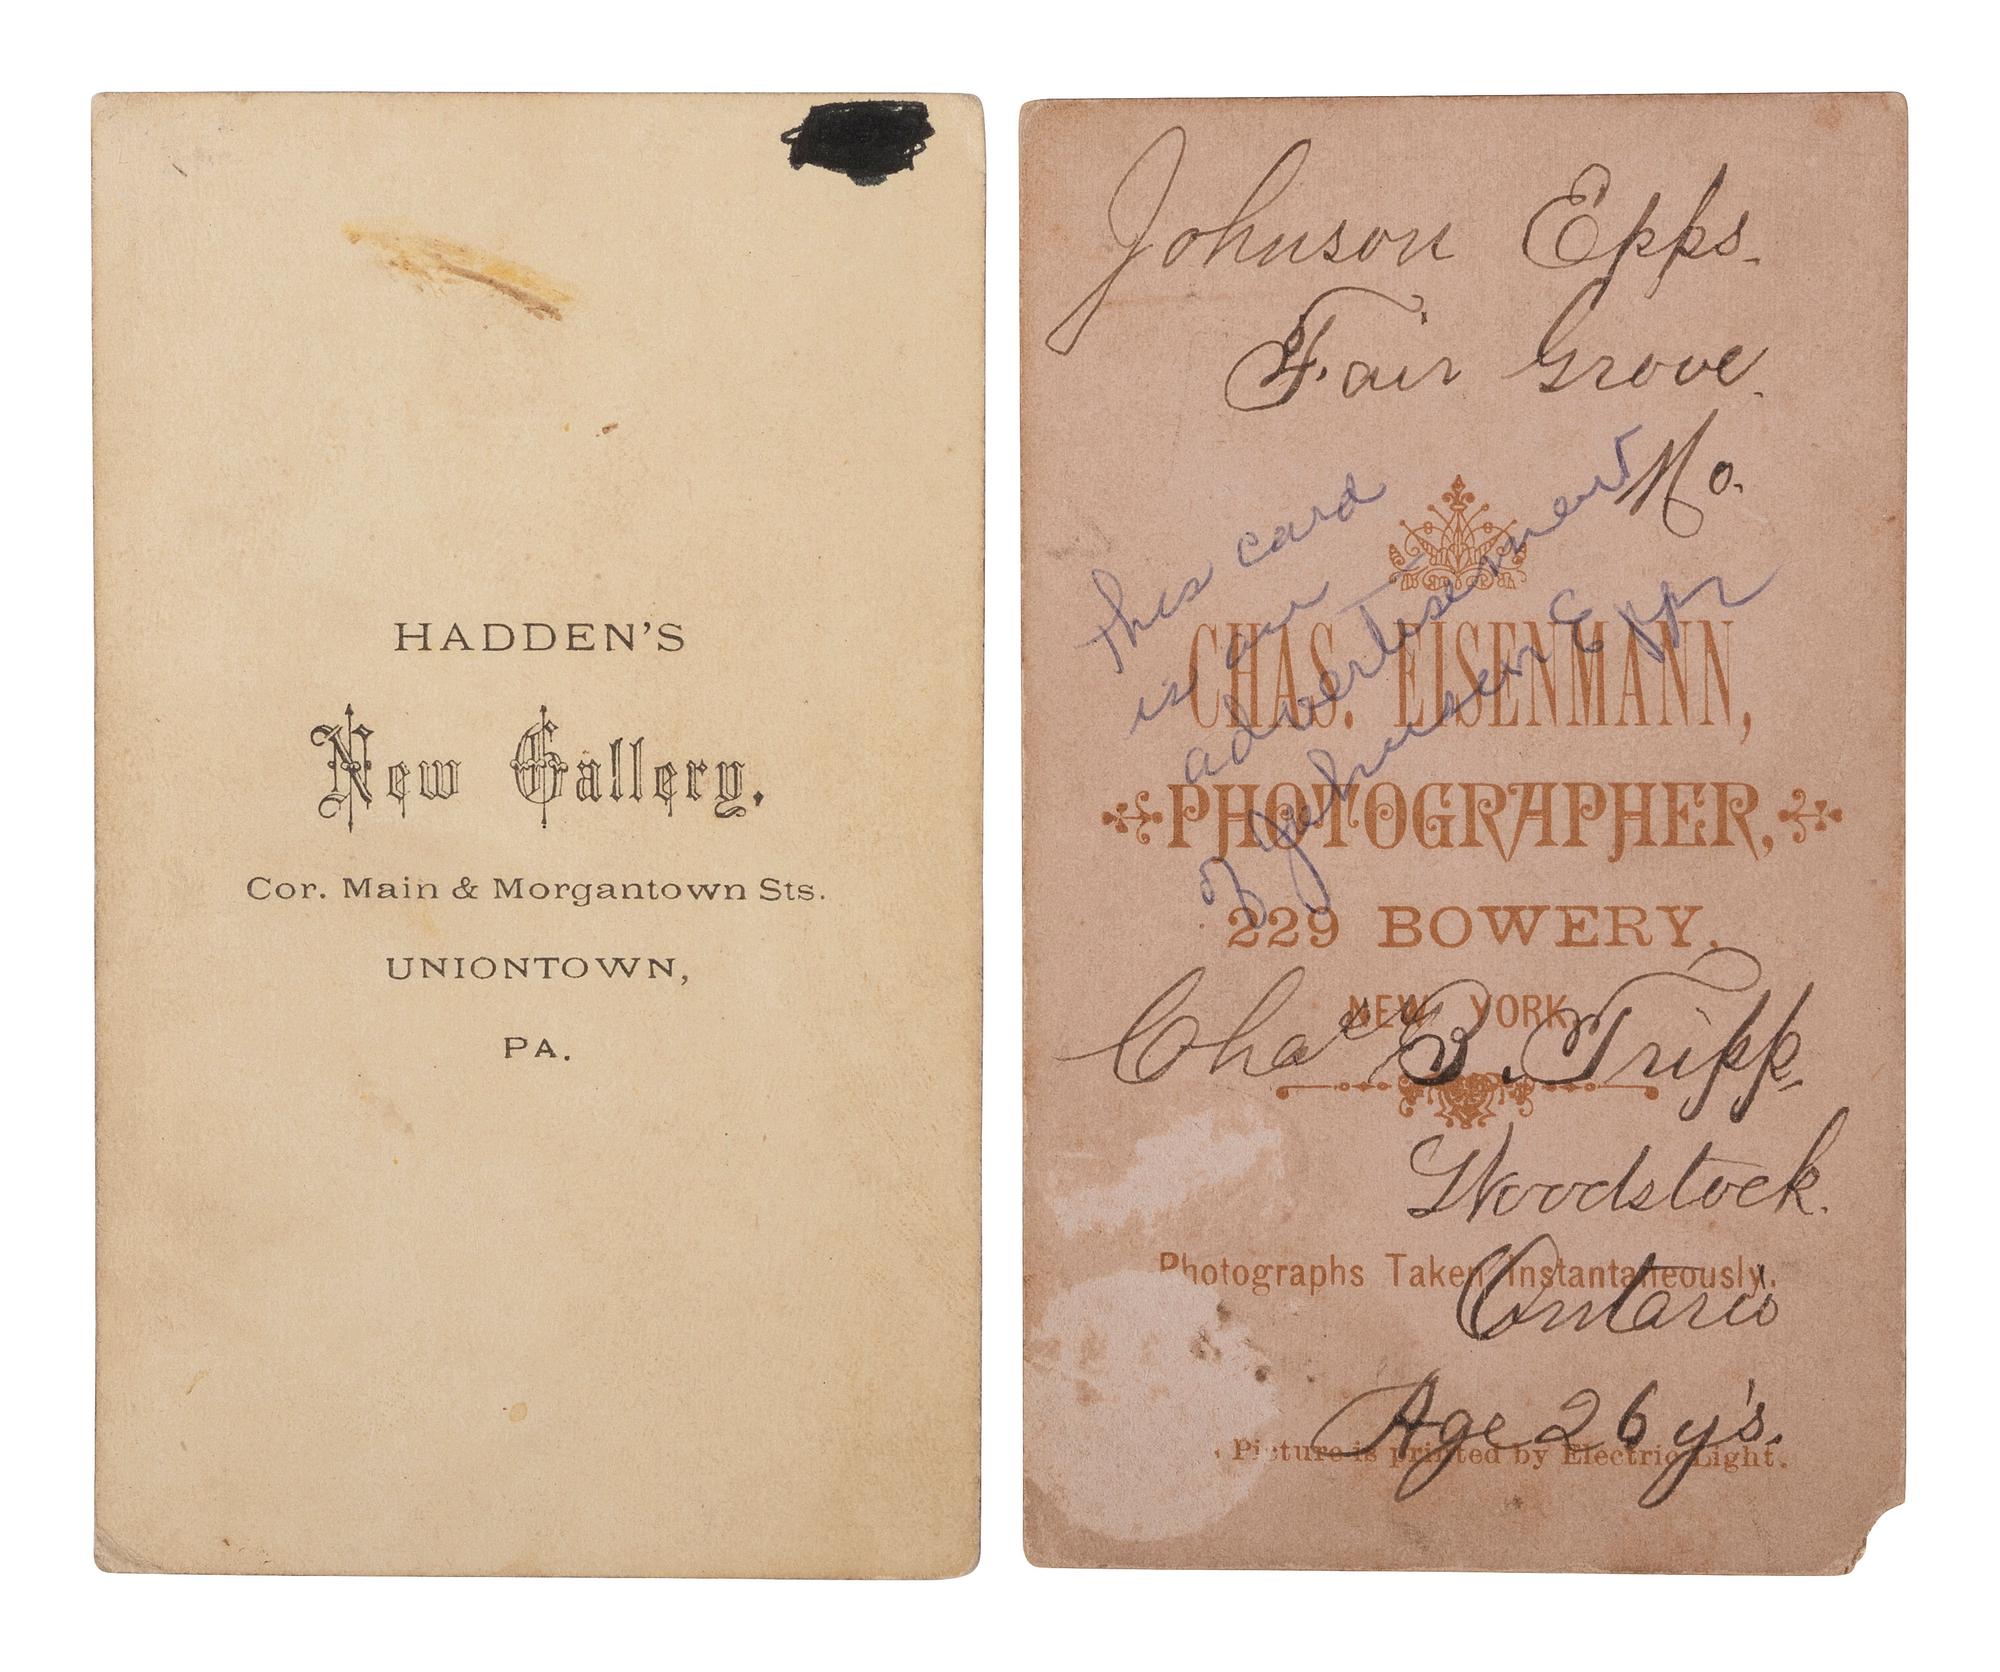 HADDEN'S
New Gallery.
Cor. Main & Morgantown Sts.
UNIONTOWN,
PA.
Johnson Epps.
Fair Grove.
Mo.
this card
is an
advertisement
of Johnson Epps
CHAS. EISENMANN,
PHOTOGRAPHER,
229 BOWERY,
NEW YORK
Chas B. Tripp.
Woodstock.
Photographs Taken Instantaneously.
Ontario
Age 26 y's.
Picture is printed by Electric Light.